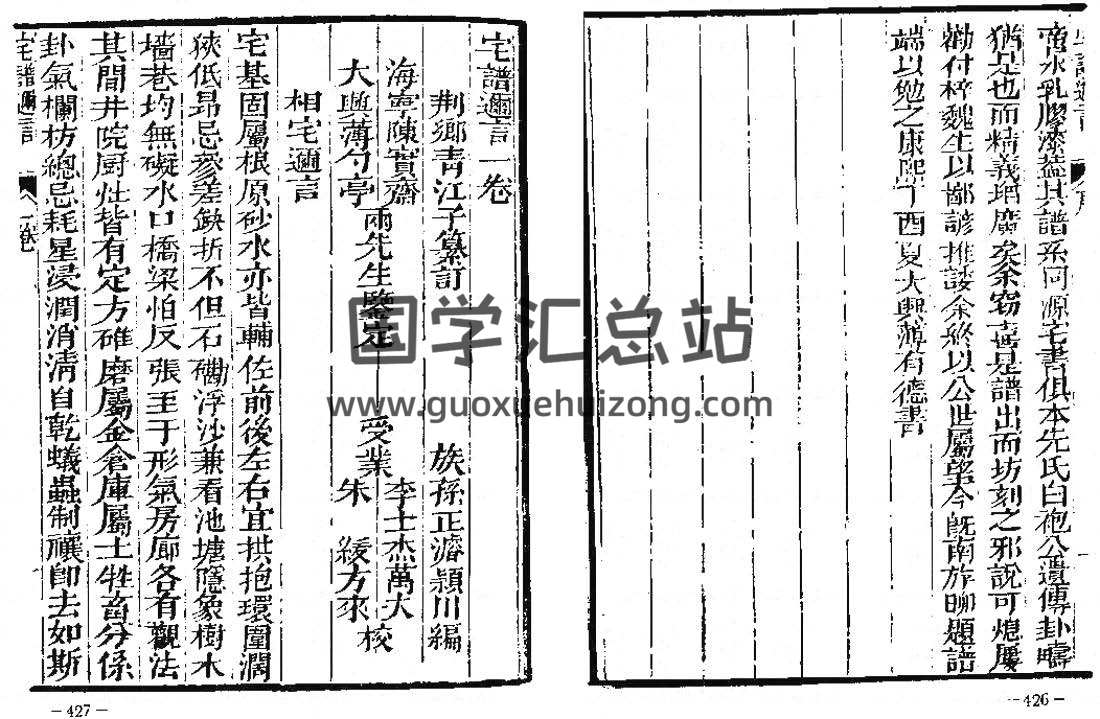 啻水乳膠漆葢其譜系同源宅書俱本先氏白袍公遺傳卦疇
猶是也而精義瑣廣矣余窃喜是譜出而坊刻之邪說可熄屡
勸付梓魏生以鄙諺推諉余終以公世屬望今既南旋聊題譜
端以勉之康熙丁酉夏大興薄有德書
宅譜邇言 序
-426-
宅譜邇言一卷
荆鄉青江子纂訂 族孫正濬頴川編
海寧陳實齋
大興薄勺亭 兩先生鑒定 受業 李士杰萬大
朱 綬方來 校
相宅邇言
宅基固屬根原砂水亦皆輔佐前後左右宜拱抱環圍濶
狹低昂忌參差缺折不但石磡浮沙兼看池塘隱象樹木
墻巷均無礙水口橋梁怕反張至于形氣房廊各有觀法
其間井院厨灶皆有定方碓磨屬金倉庫屬土牲畜分係
卦氣欄枋總忌耗星浸潤消淸自乾蟻蟲制禳卽去如斯
宅譜邇言 一卷
-427-
国学汇总站
www.guoxuehuizong.com